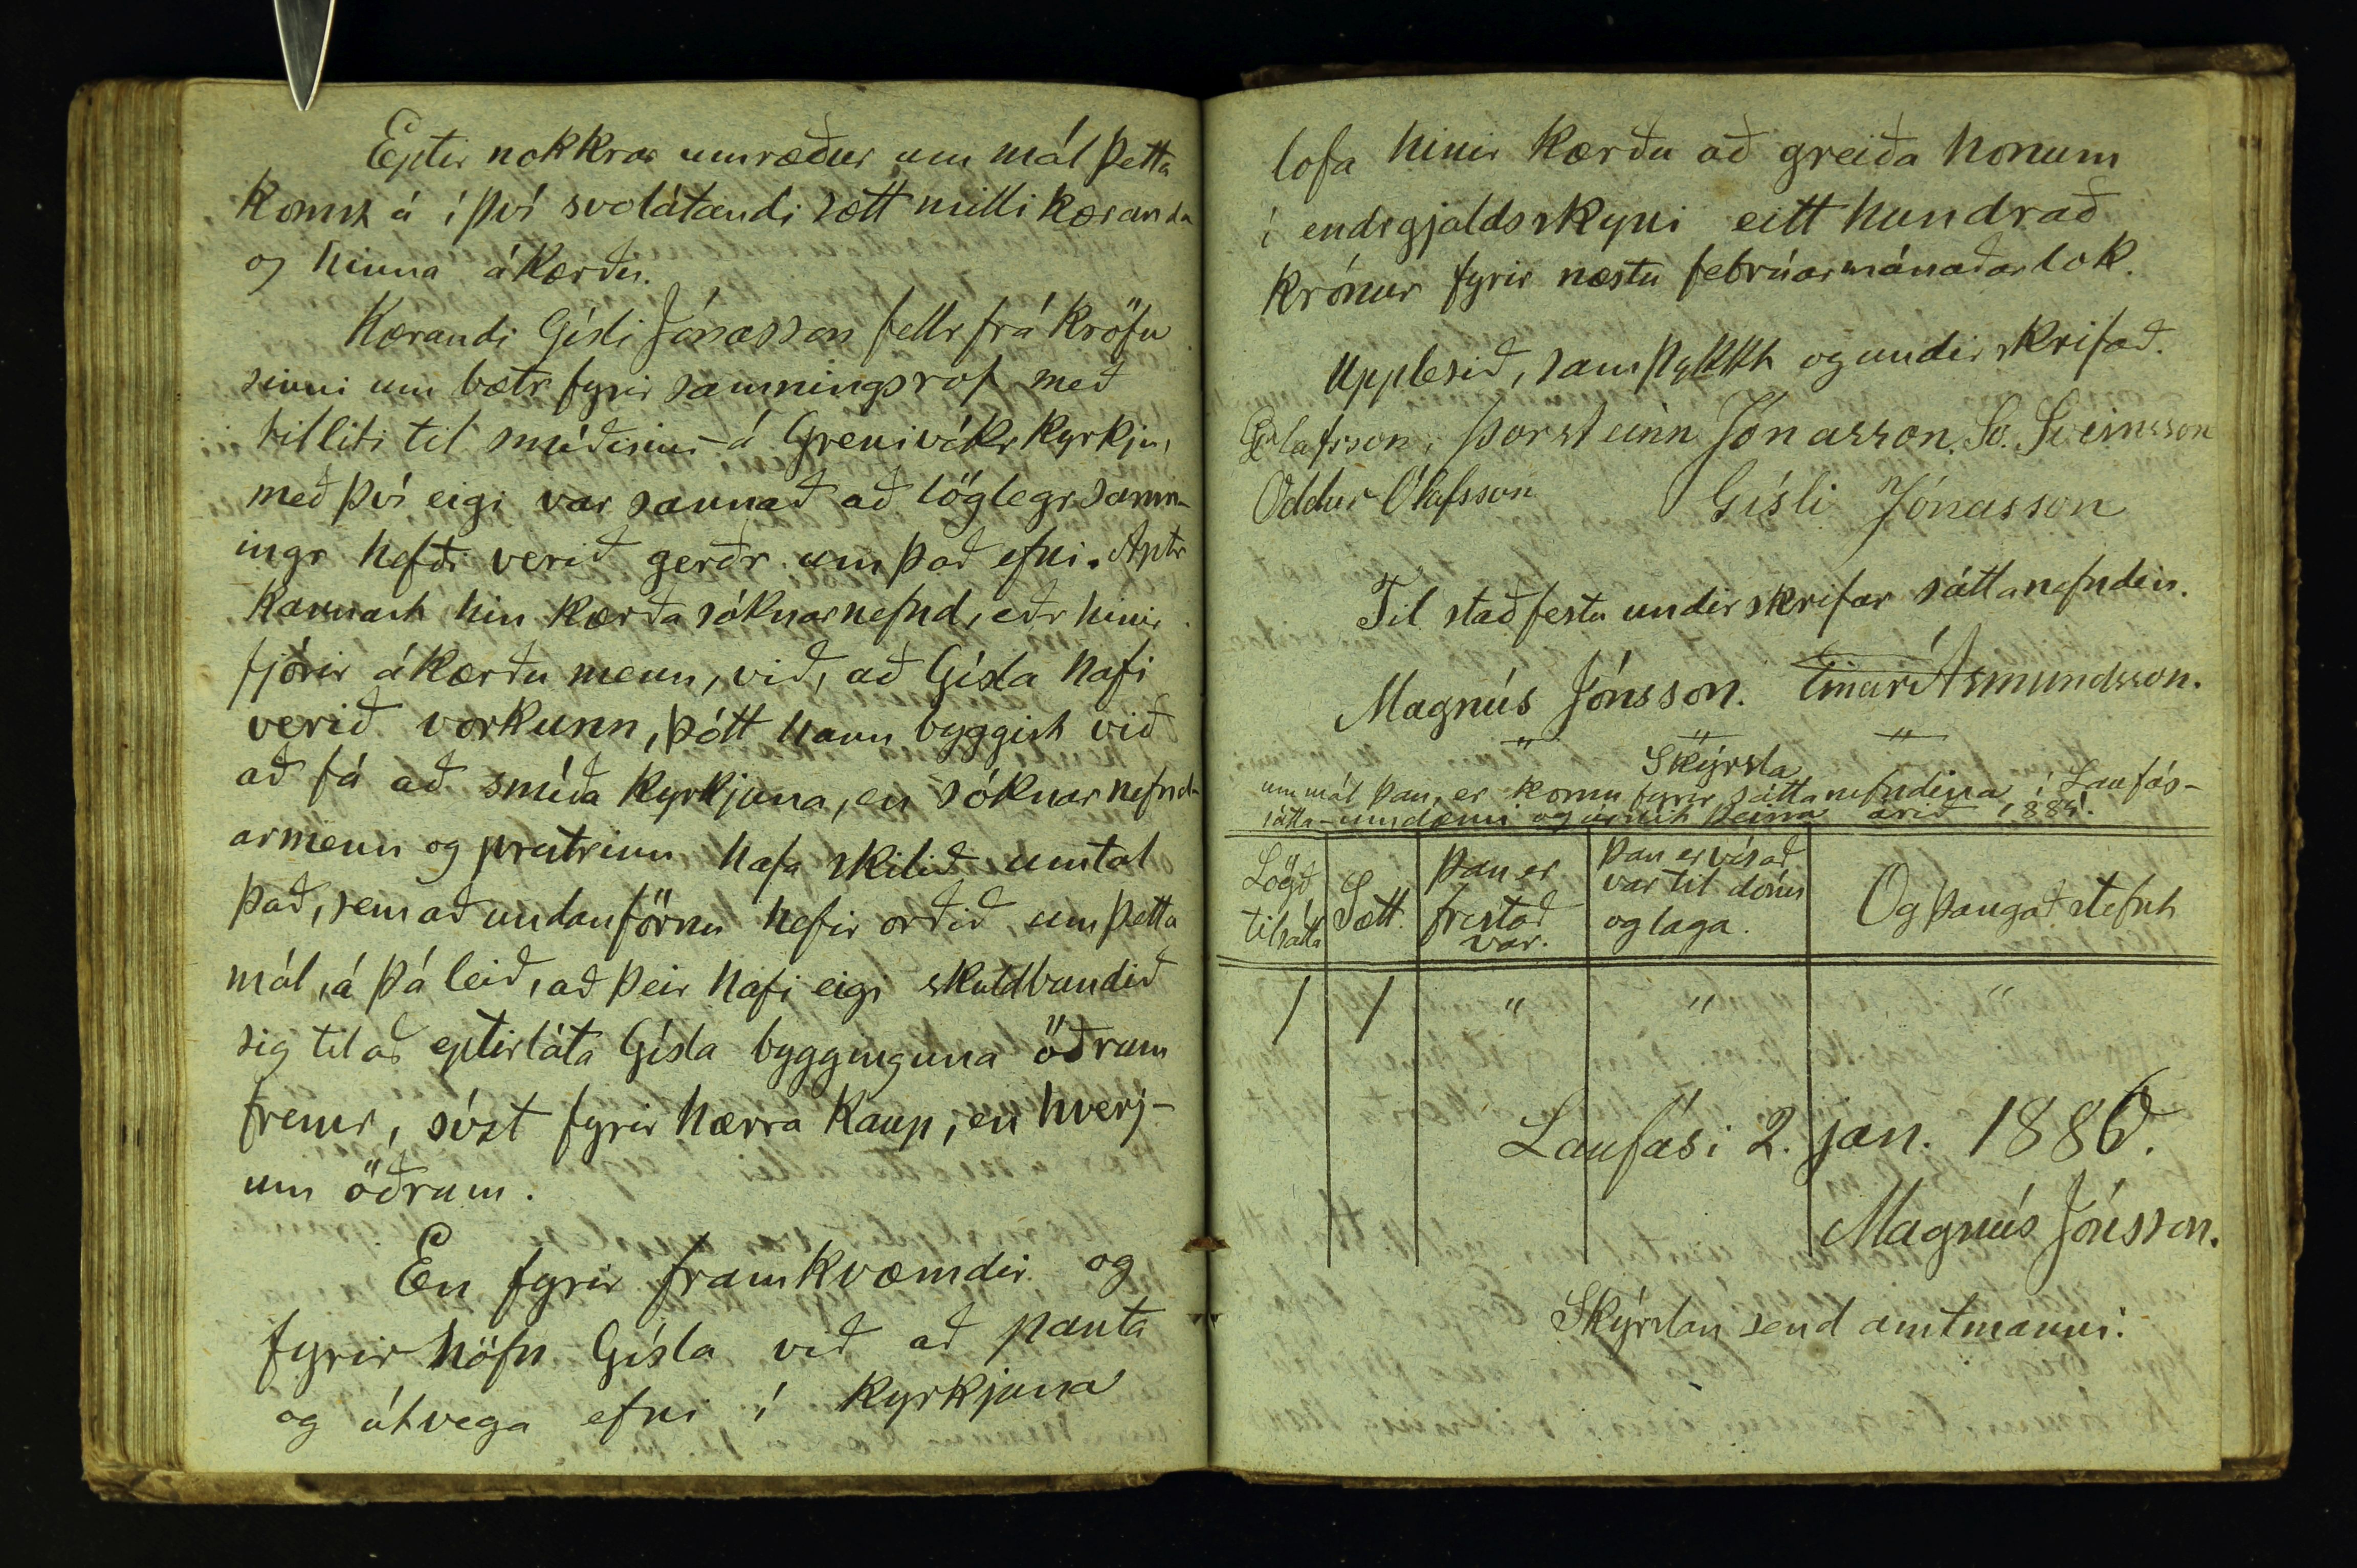 Eptir nokkrar umræður um mál þetta
komst á í því svolátandi sætt milli kæranda
og hinna ákærðu.
Kærandi Gísli Jónasson fellr frá kröfu
sinni um bætr fyrir samningsrof með
tilliti til smíðisins á Grenivíkr kyrkju,
með því eigi var sannað að löglegr samn-
ingr hefði verið gerðr um það efni. Aptr
kannast hin kærða sóknarnefnd, eðr hinir
fjórir ákærðu menn, við, að Gísla hafi
verið vorkunn, þótt hann byggist við
að fá að smíða kyrkjuna, en sóknarnefnd-
armenn og prestrinn hafa skilið umtal
það, sem að undanförnu hefir orðið um þetta
mál, á þá leið, að þeir hafi eigi skuldbundið
sig til að eptirláta Gísla bygginguna öðrum
fremr, sízt fyrir hærra kaup, en hverj-
um öðrum.
En fyrir framkvæmdir og
fyrirhöfn Gísla við að panta
og útvega efni í kyrkjuna
lofa hinir kærðu að greiða honum
í endrgjaldsskyni eitt hundrað
krónur fyrir næstu febrúarmánaðarlok.
Upplesið, samþykkt og undirskrifað.
Olafsson, Þorsteinn Jónasson. Sv. Sveinsson
Oddur Ólafsson Gísli Jónasson
Til staðfestu undirskrifar sáttanefndin.
Magnús Jónsson. Einar Ásmundsson.
" "
Skýrsla
um mál þau, er komu fyrir sáttanefndina í Laufás-
sátta-umdæmi og úrslit þeirra árið 1885.
Lögð
til sátta
Sætt.
Þau er
frestað
var.
Þau er vísað
var til dóms
og laga.
Og þangað stefnt
1 1 " " "
Laufási 2. jan. 1886.
Magnús Jónsson.
Skýrslan send amtmanni.